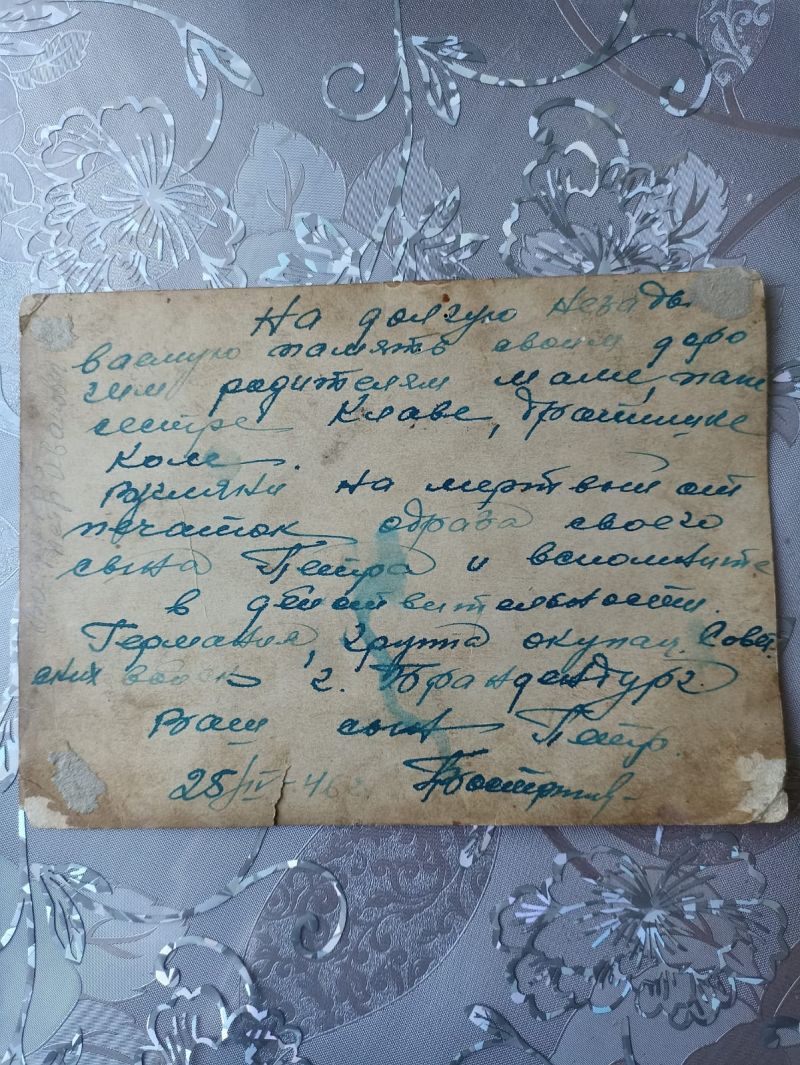 На долгую незабы
ваемую память своим доро
гим родителям маме, папе
сестре Клаве, братишке
Коле.
Взгляни на мертвый от
печаток образа своего
сына Петра и вспомните
в действительности.
Германия, группа окупац. Совет.
ских войск г. Бранденбург.
Ваш сын Петр.
25/IV-46 г.